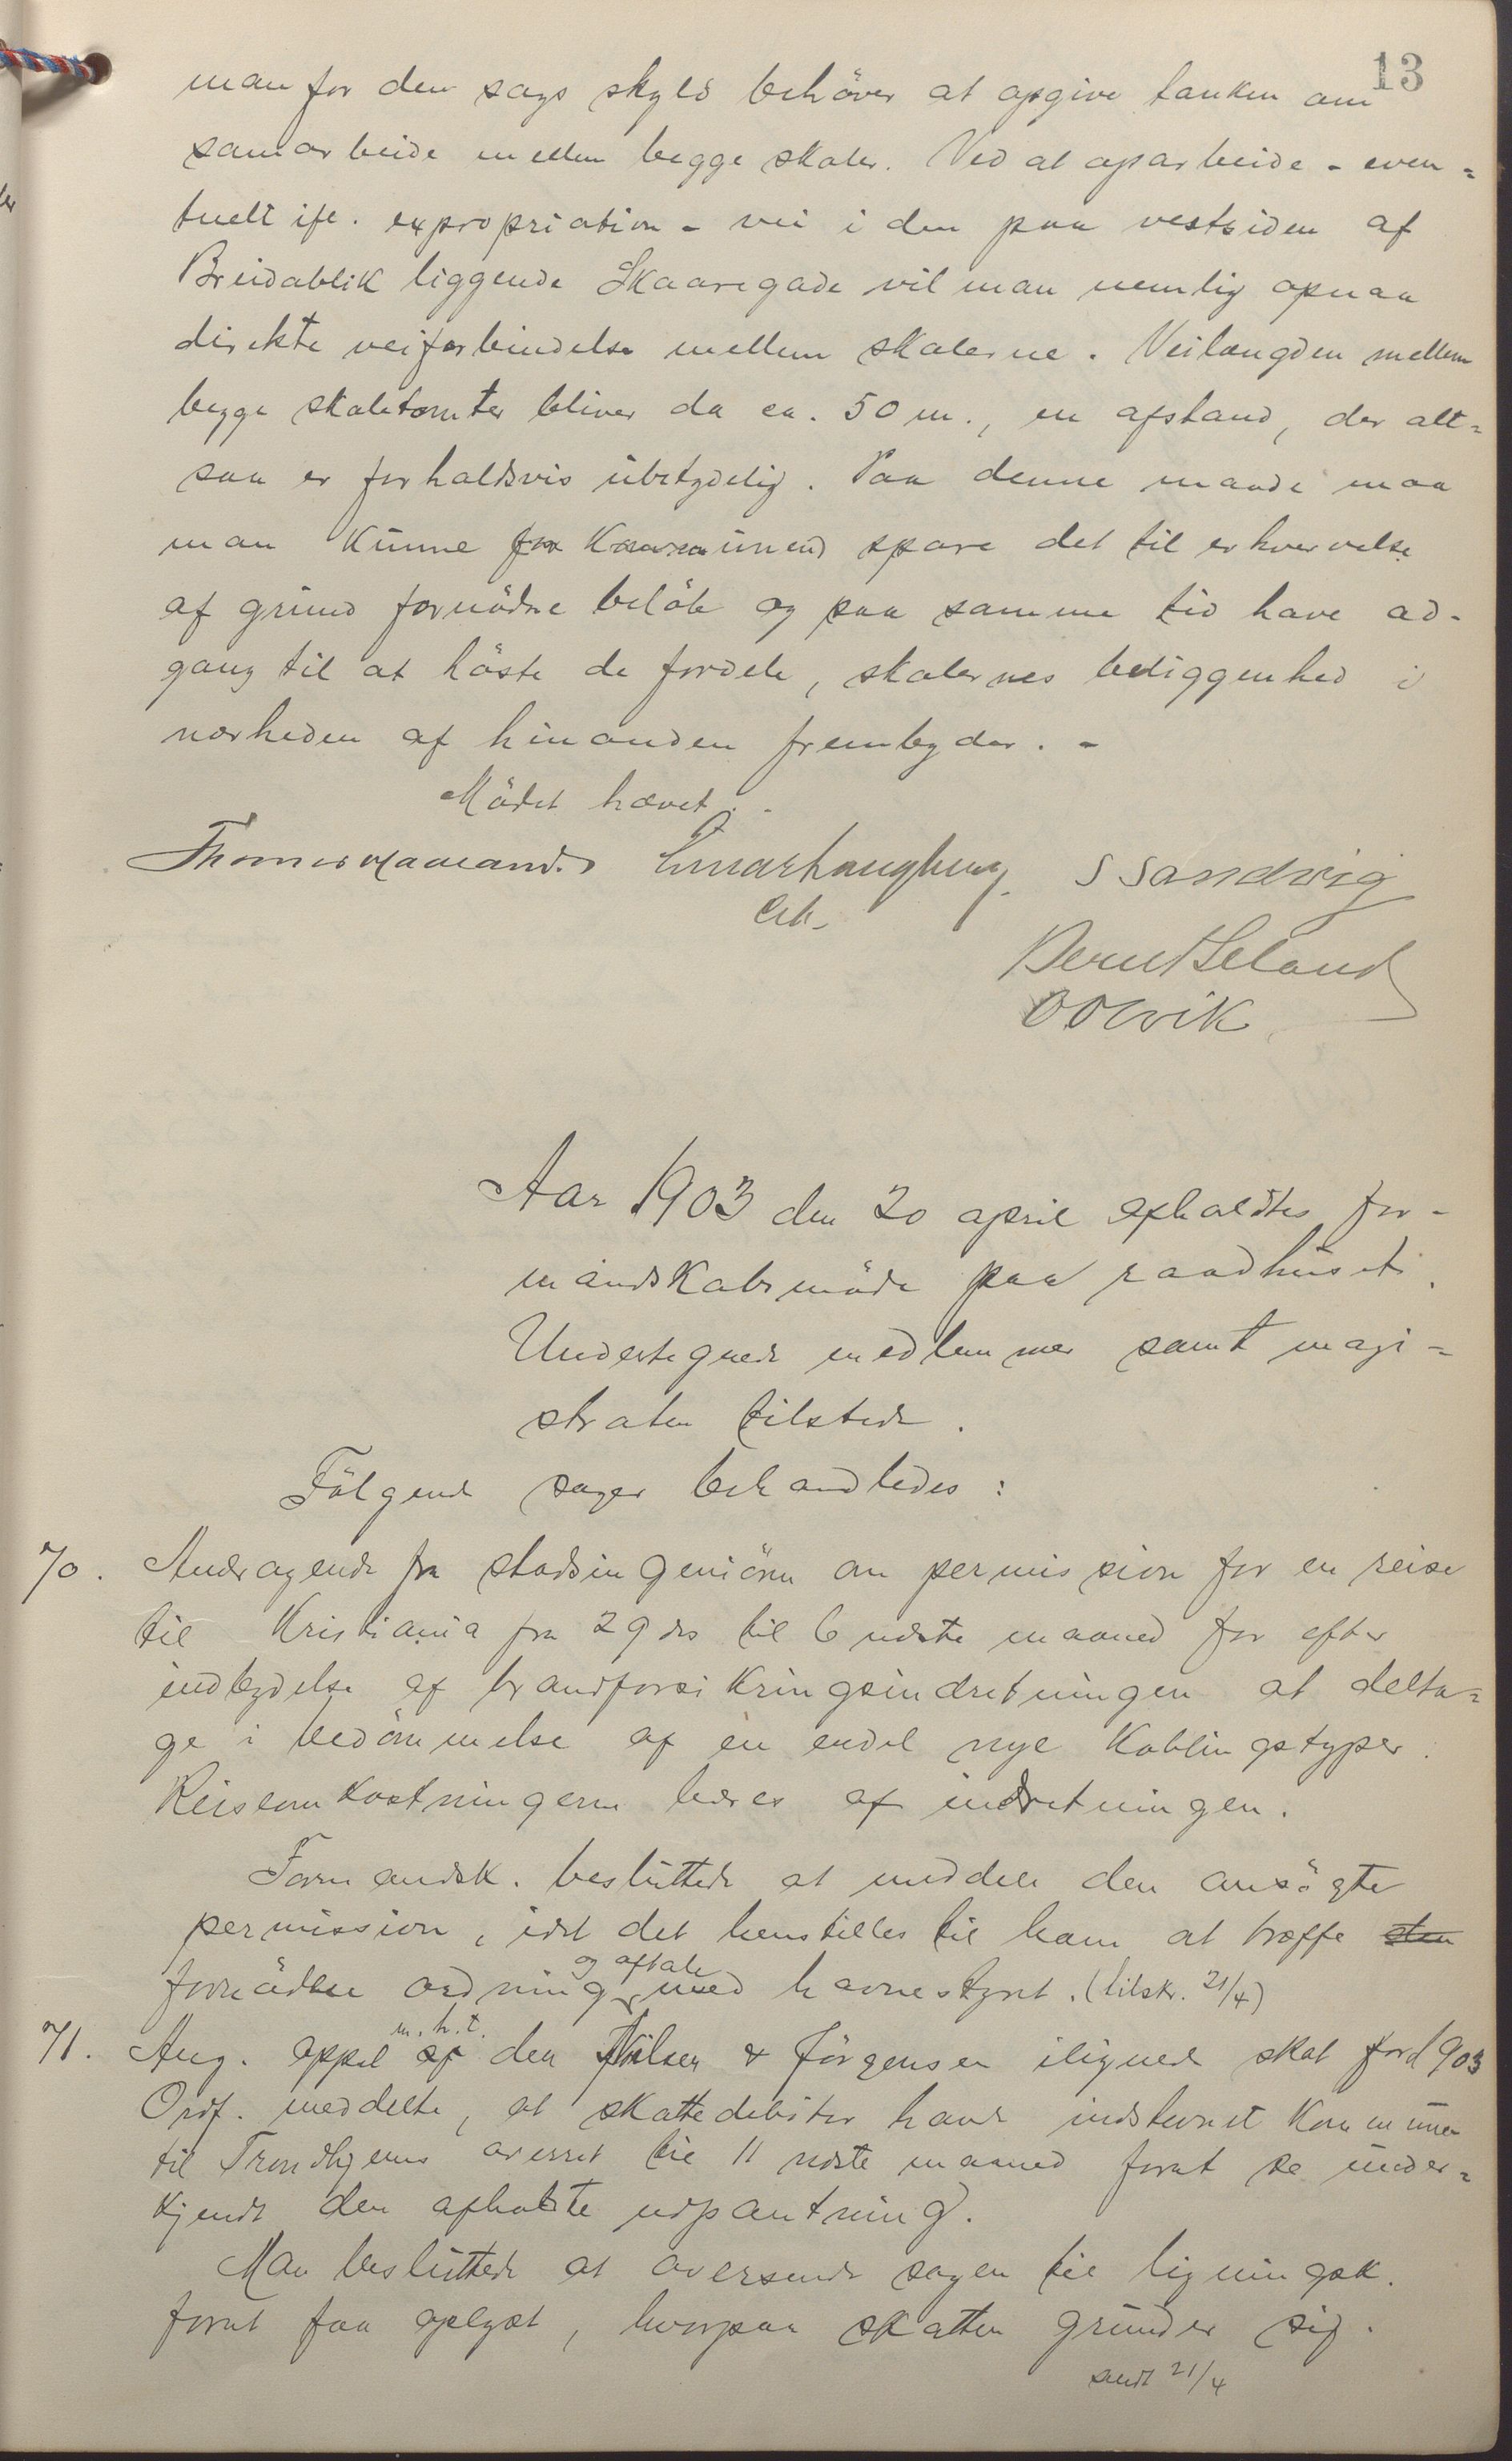 13
man for den sags skyld behöver at opgive tanken om
samarbeide mellem begge skoler. Ved at oparbeide - even=
tuelt ifl. expropriation - vei i den paa vestsiden af
Breidablik liggende Skaaregade vil man nemlig opnaa
direkte veiforbindelse mellem skolerne. Veilængden mellem
begge skoletomter bliver da ca. 50 m., en afstand, der alt=
saa er forholdsvis ubetydelig. Paa denne maade maa
man kunne for kommunen spare det til erhvervelse
af grund fornödne belöb og paa samme tid have ad-
gang til at höste de fordele, skolernes beliggenhed i
nærheden af hinanden frembyder. -
Mödet hævet.
Thomas Haaland. Einar Haugberg. S Sandvig
Berent Seland
O Olvik
Aar 1903 den 20 april afholdtes for-
mandskabsmöde paa raadhuset.
Undertegnede medlemmer samt magi=
straten tilstede.
Fölgende sager behandledes:
70. Andragende fra stadsingeniören om permission for en reise
til Kristiania fra 29 ds til 6 næste maaned for efter
indbydelse af brandforsikringsindretningen at delta=
ge i bedömmelse af en endel nye koblingstyper.
Reiseomkostningerne bæres af indretningen.
Formandsk. besluttede at meddele den ansögte
permission, idet det henstilles til ham at træffe den
fornödne ordning og aftale med havnestyret. (tilskr. 21/4)
71. Ang. appel m.h.t. af den Nilsen & Jörgensen ilignede skat for 1903
Ordf. meddelte, at skattedebitor havde indstevnet kommunen
til Trondhjems overret til 11 næste maaned forat se under=
kjendt den afholdte udpantning.
Man besluttede at oversende sagen til ligningsk.
forat faa oplyst, hvorpaa skatten grunder sig.
sendt 21/4